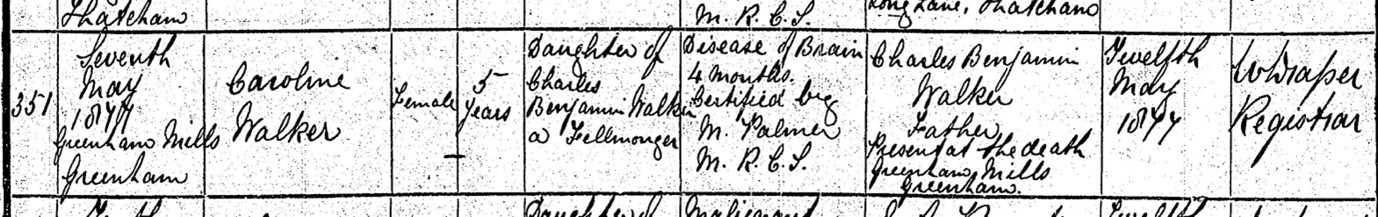 Thatcham
M. R. C. S.
Long Lane, Thatcham
351
Seventh
May
1877
Greenham Mills
Greenham
Caroline
Walker
Female
5
Years
Daughter of
Charles
Benjamin Walker
a Fellmonger
Disease of Brain
4 Months.
Certified by
M. Palmer
M. R. C. S.
Charles Benjamin
Walker
Father
Present at the death
Greenham Mills
Greenham.
Twelfth
May
1877
W Draper
Registrar
Tenth
Daughter of
Malignant
Twelfth